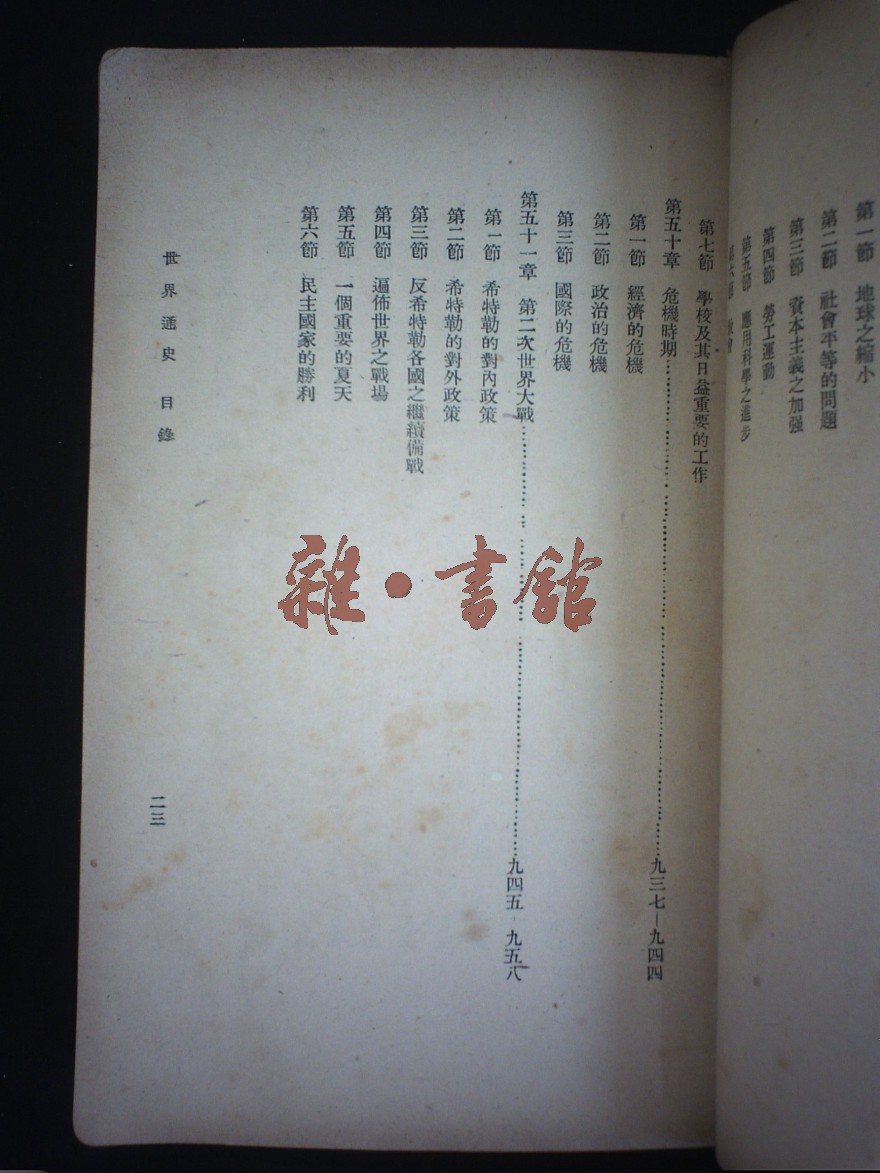 第一節 地球之縮小
第二節 社會平等的問題
第三節 資本主義之加强
第四節 勞工運動
第五節 應用科學之進步
第六節 教會
第七節 學校及其日益重要的工作
第五十章 危機時期……九三七—九四四
第一節 經濟的危機
第二節 政治的危機
第三節 國際的危機
第五十一章 第二次世界大戰……九四五—九五八
第一節 希特勒的對內政策
第二節 希特勒的對外政策
第三節 反希特勒各國之繼續備戰
第四節 遍佈世界之戰場
第五節 一個重要的夏天
第六節 民主國家的勝利
世界通史 目錄
二三
雜·書館